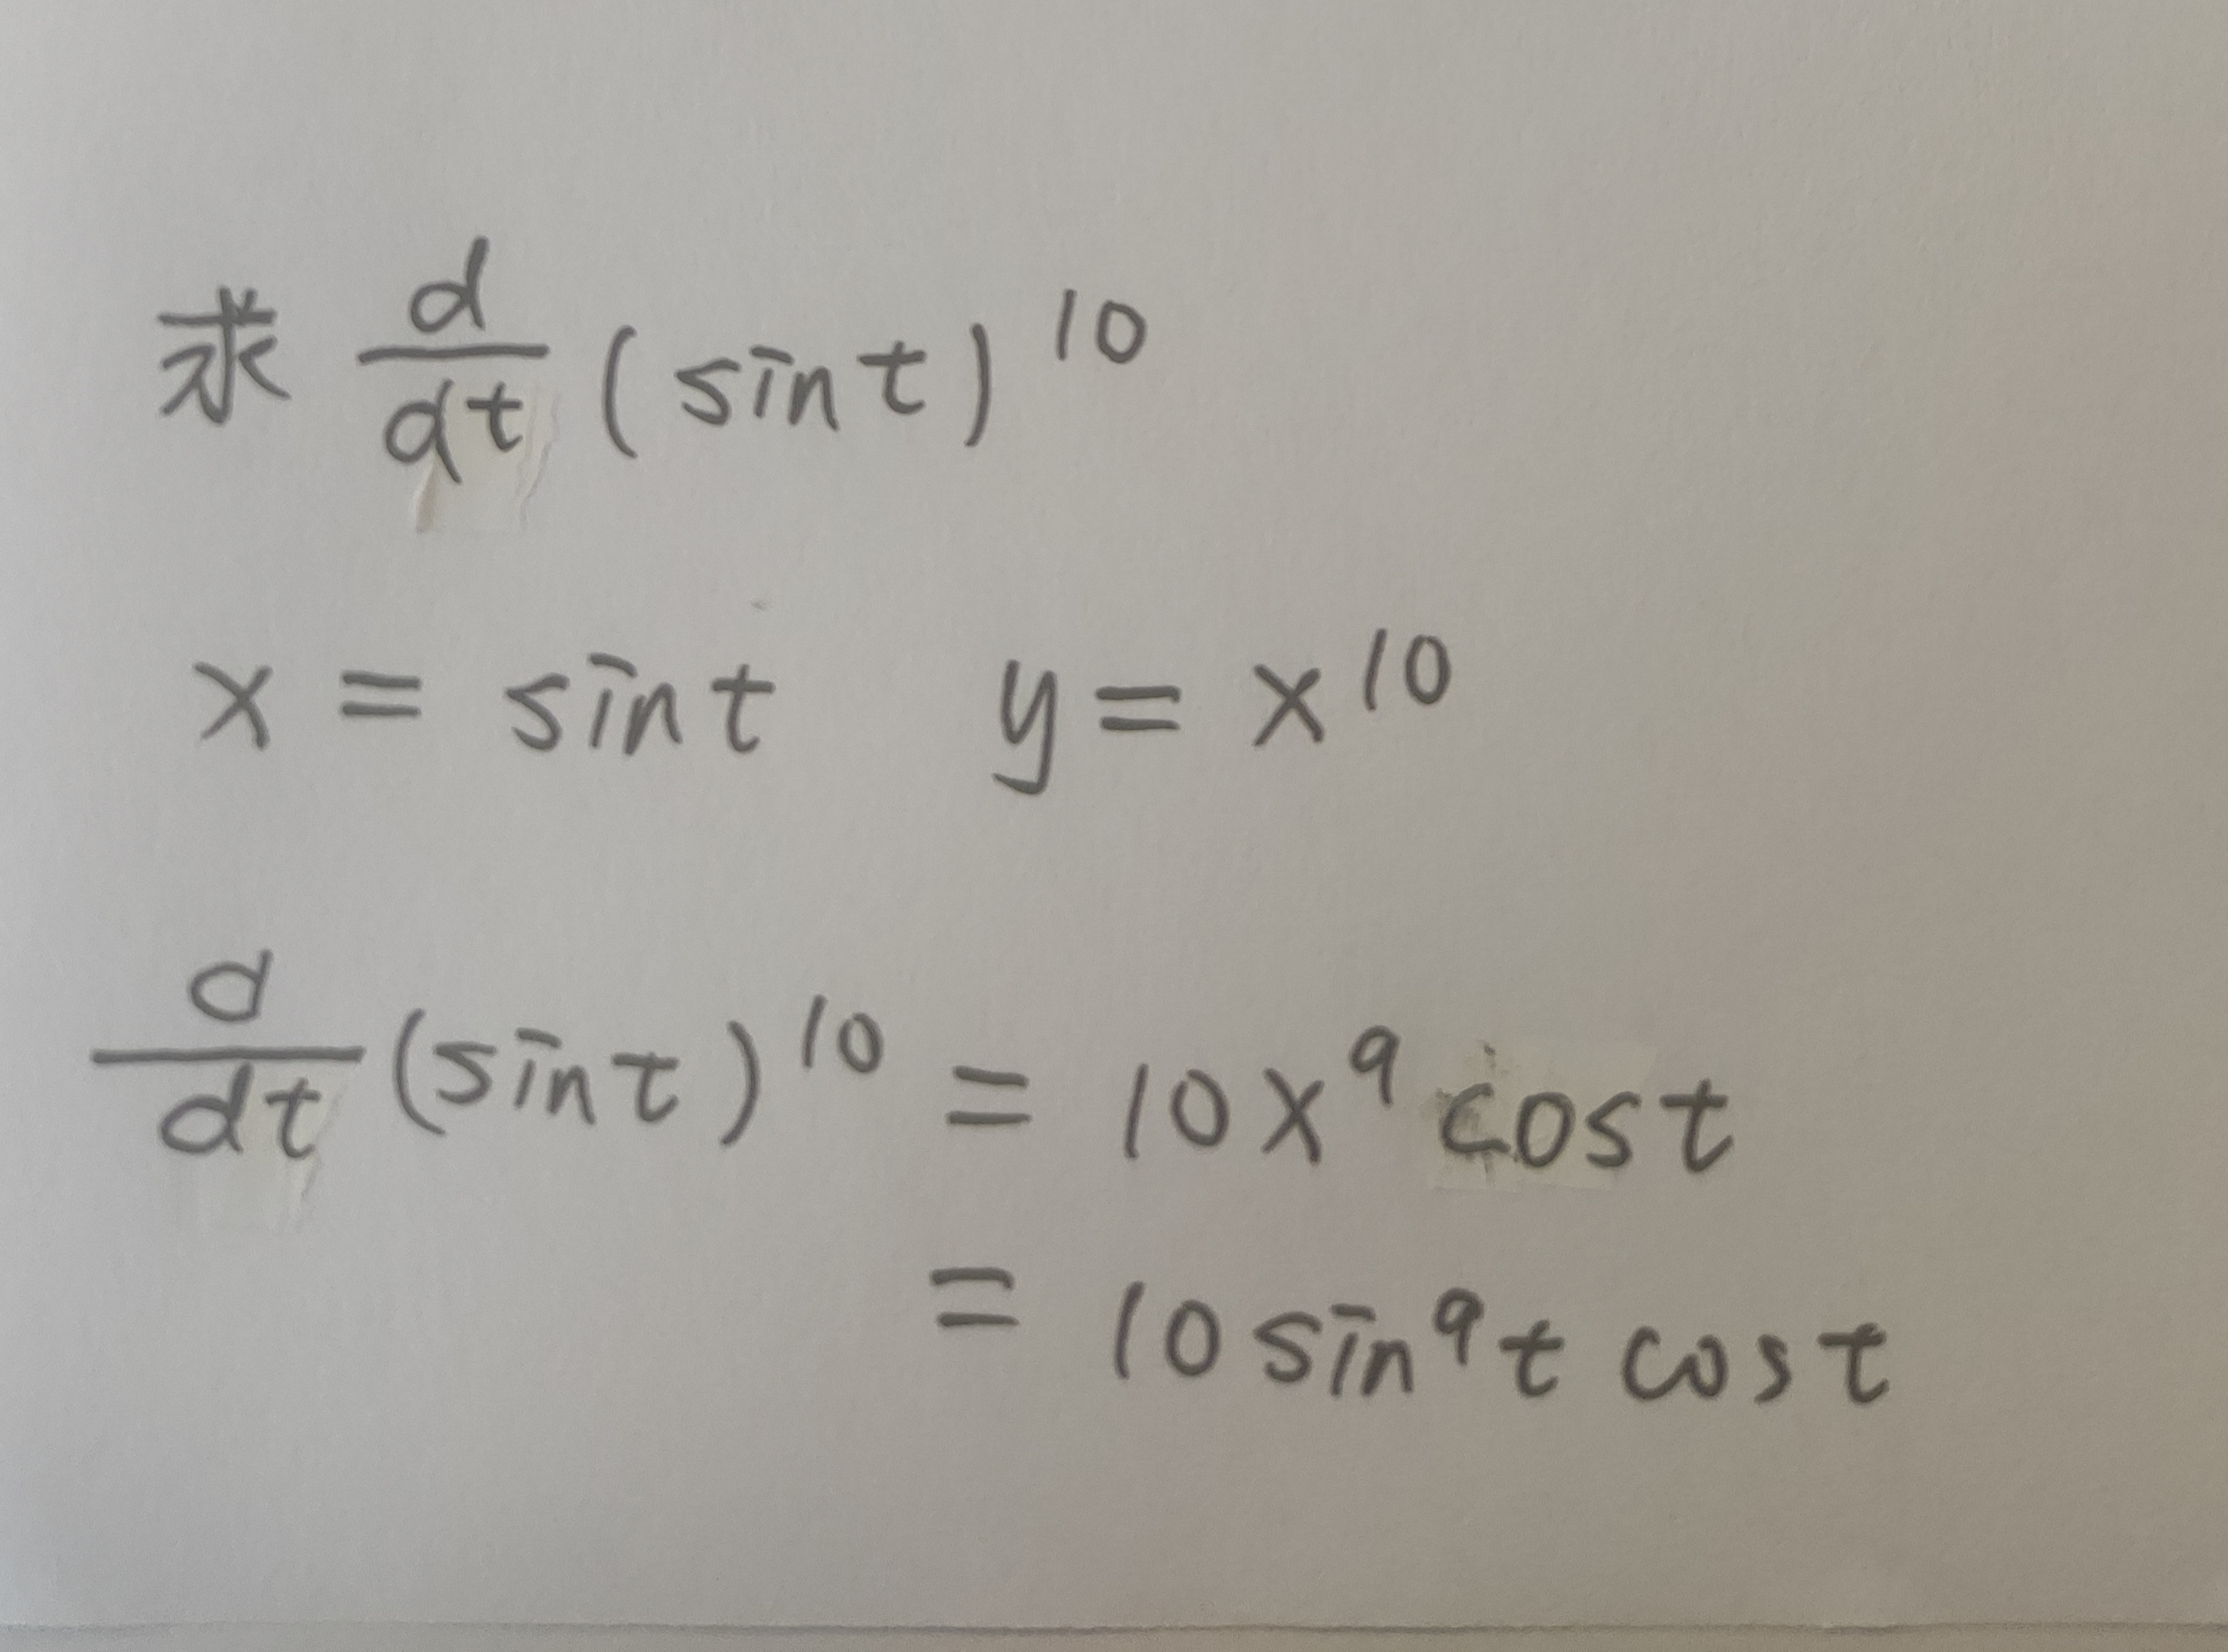 求 d/dt (sin t)^10
x = sin t y = x^10
d/dt (sin t)^10 = 10x^9 cos t
= 10 sin^9 t cos t